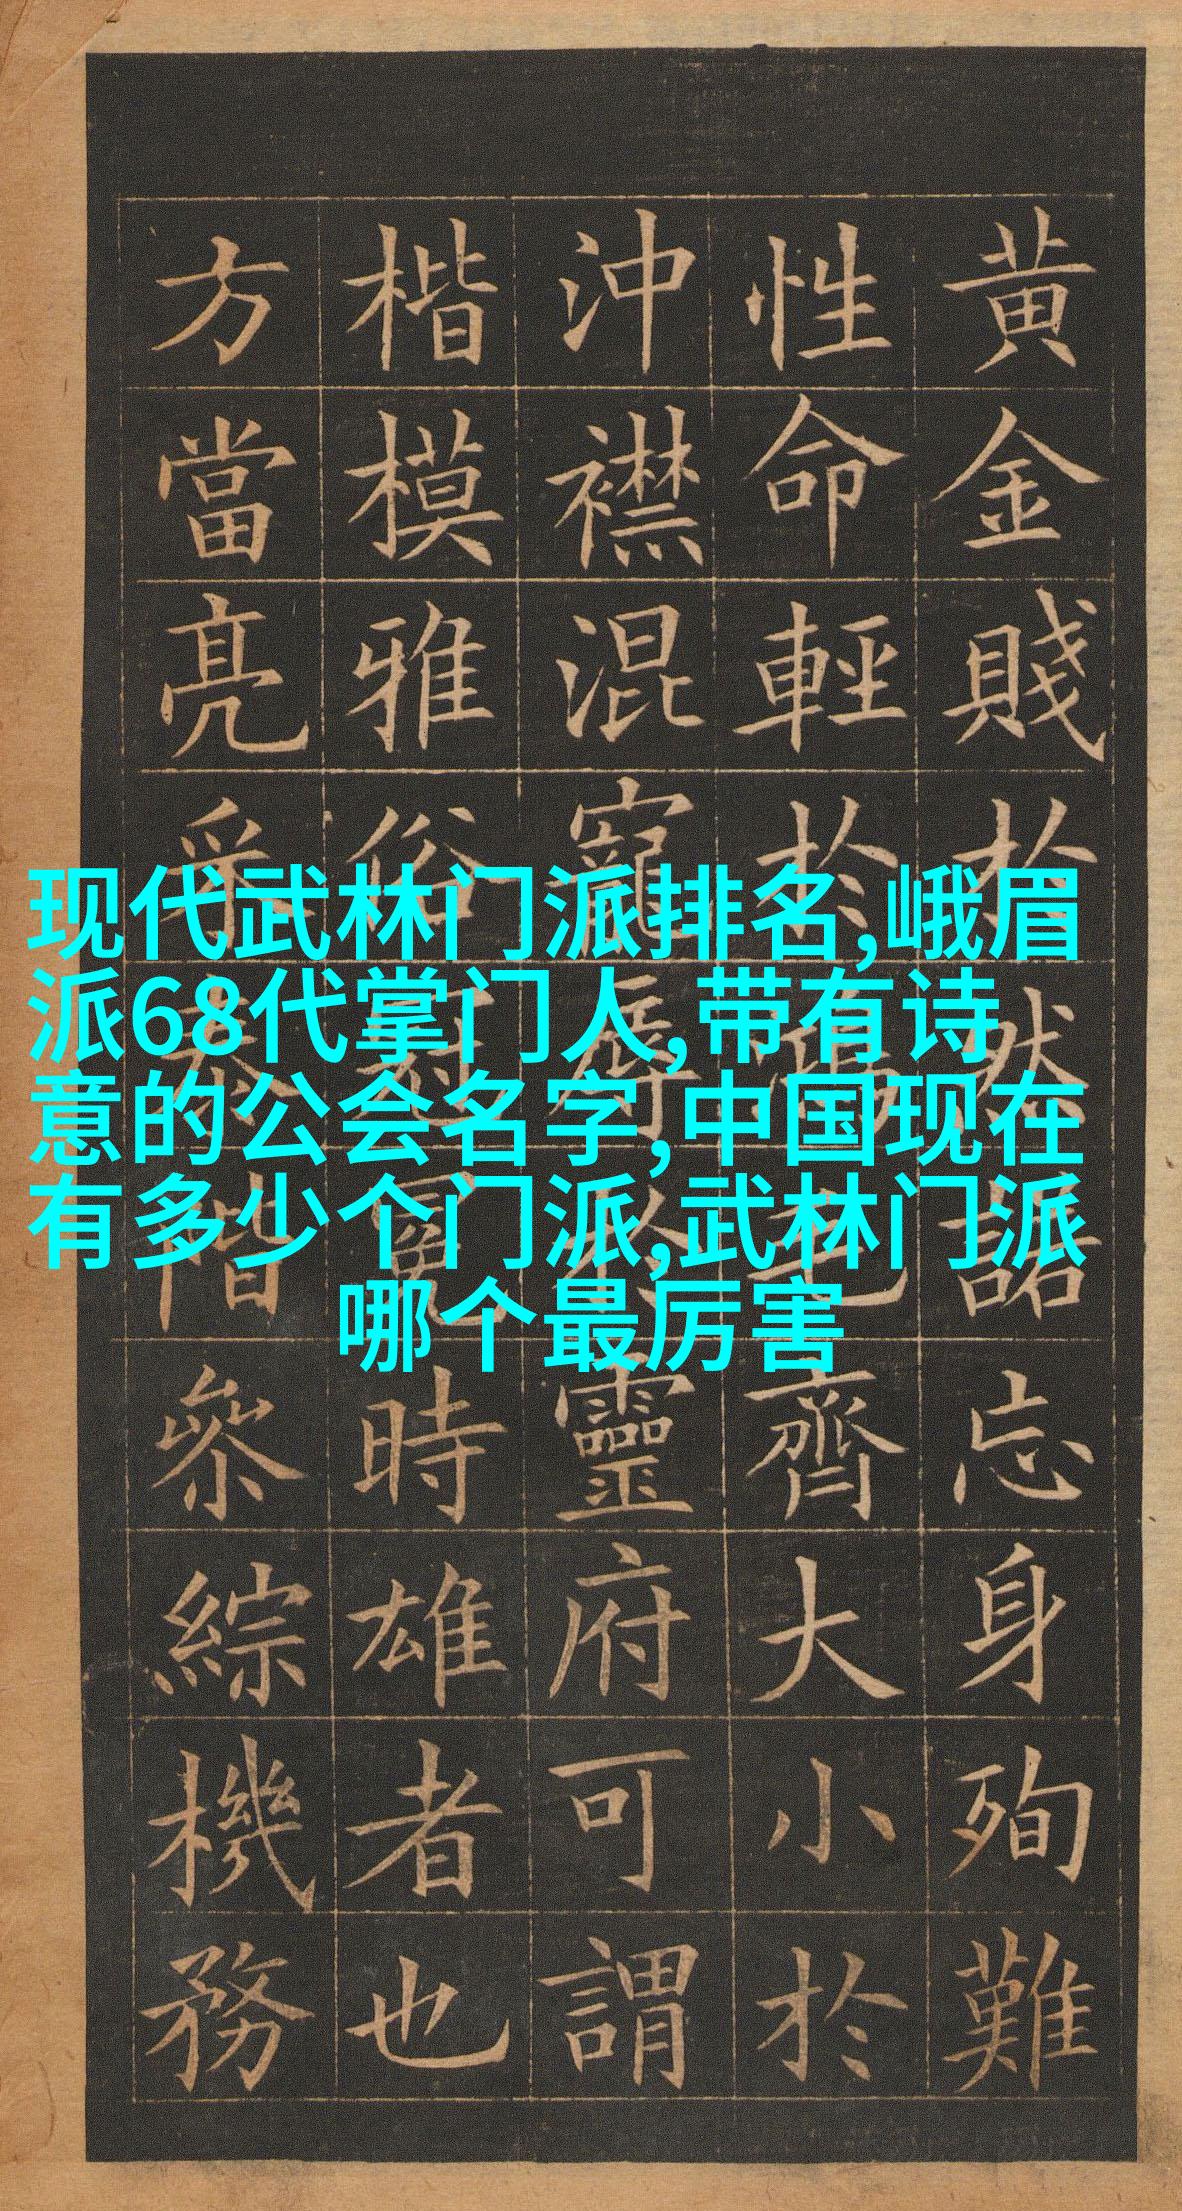 黄金賤於然諾忘身殉難
性命輕於鴻毛齊大小於
沖襟混寵辱於靈府可謂
楷模雅俗冠冕時雄者也
方當亮采泰階參綜機務
现代武林门派排名,峨眉
派68代掌门人,带有诗
意的公会名字,中国现在
有多少个门派,武林门派
哪个最厉害